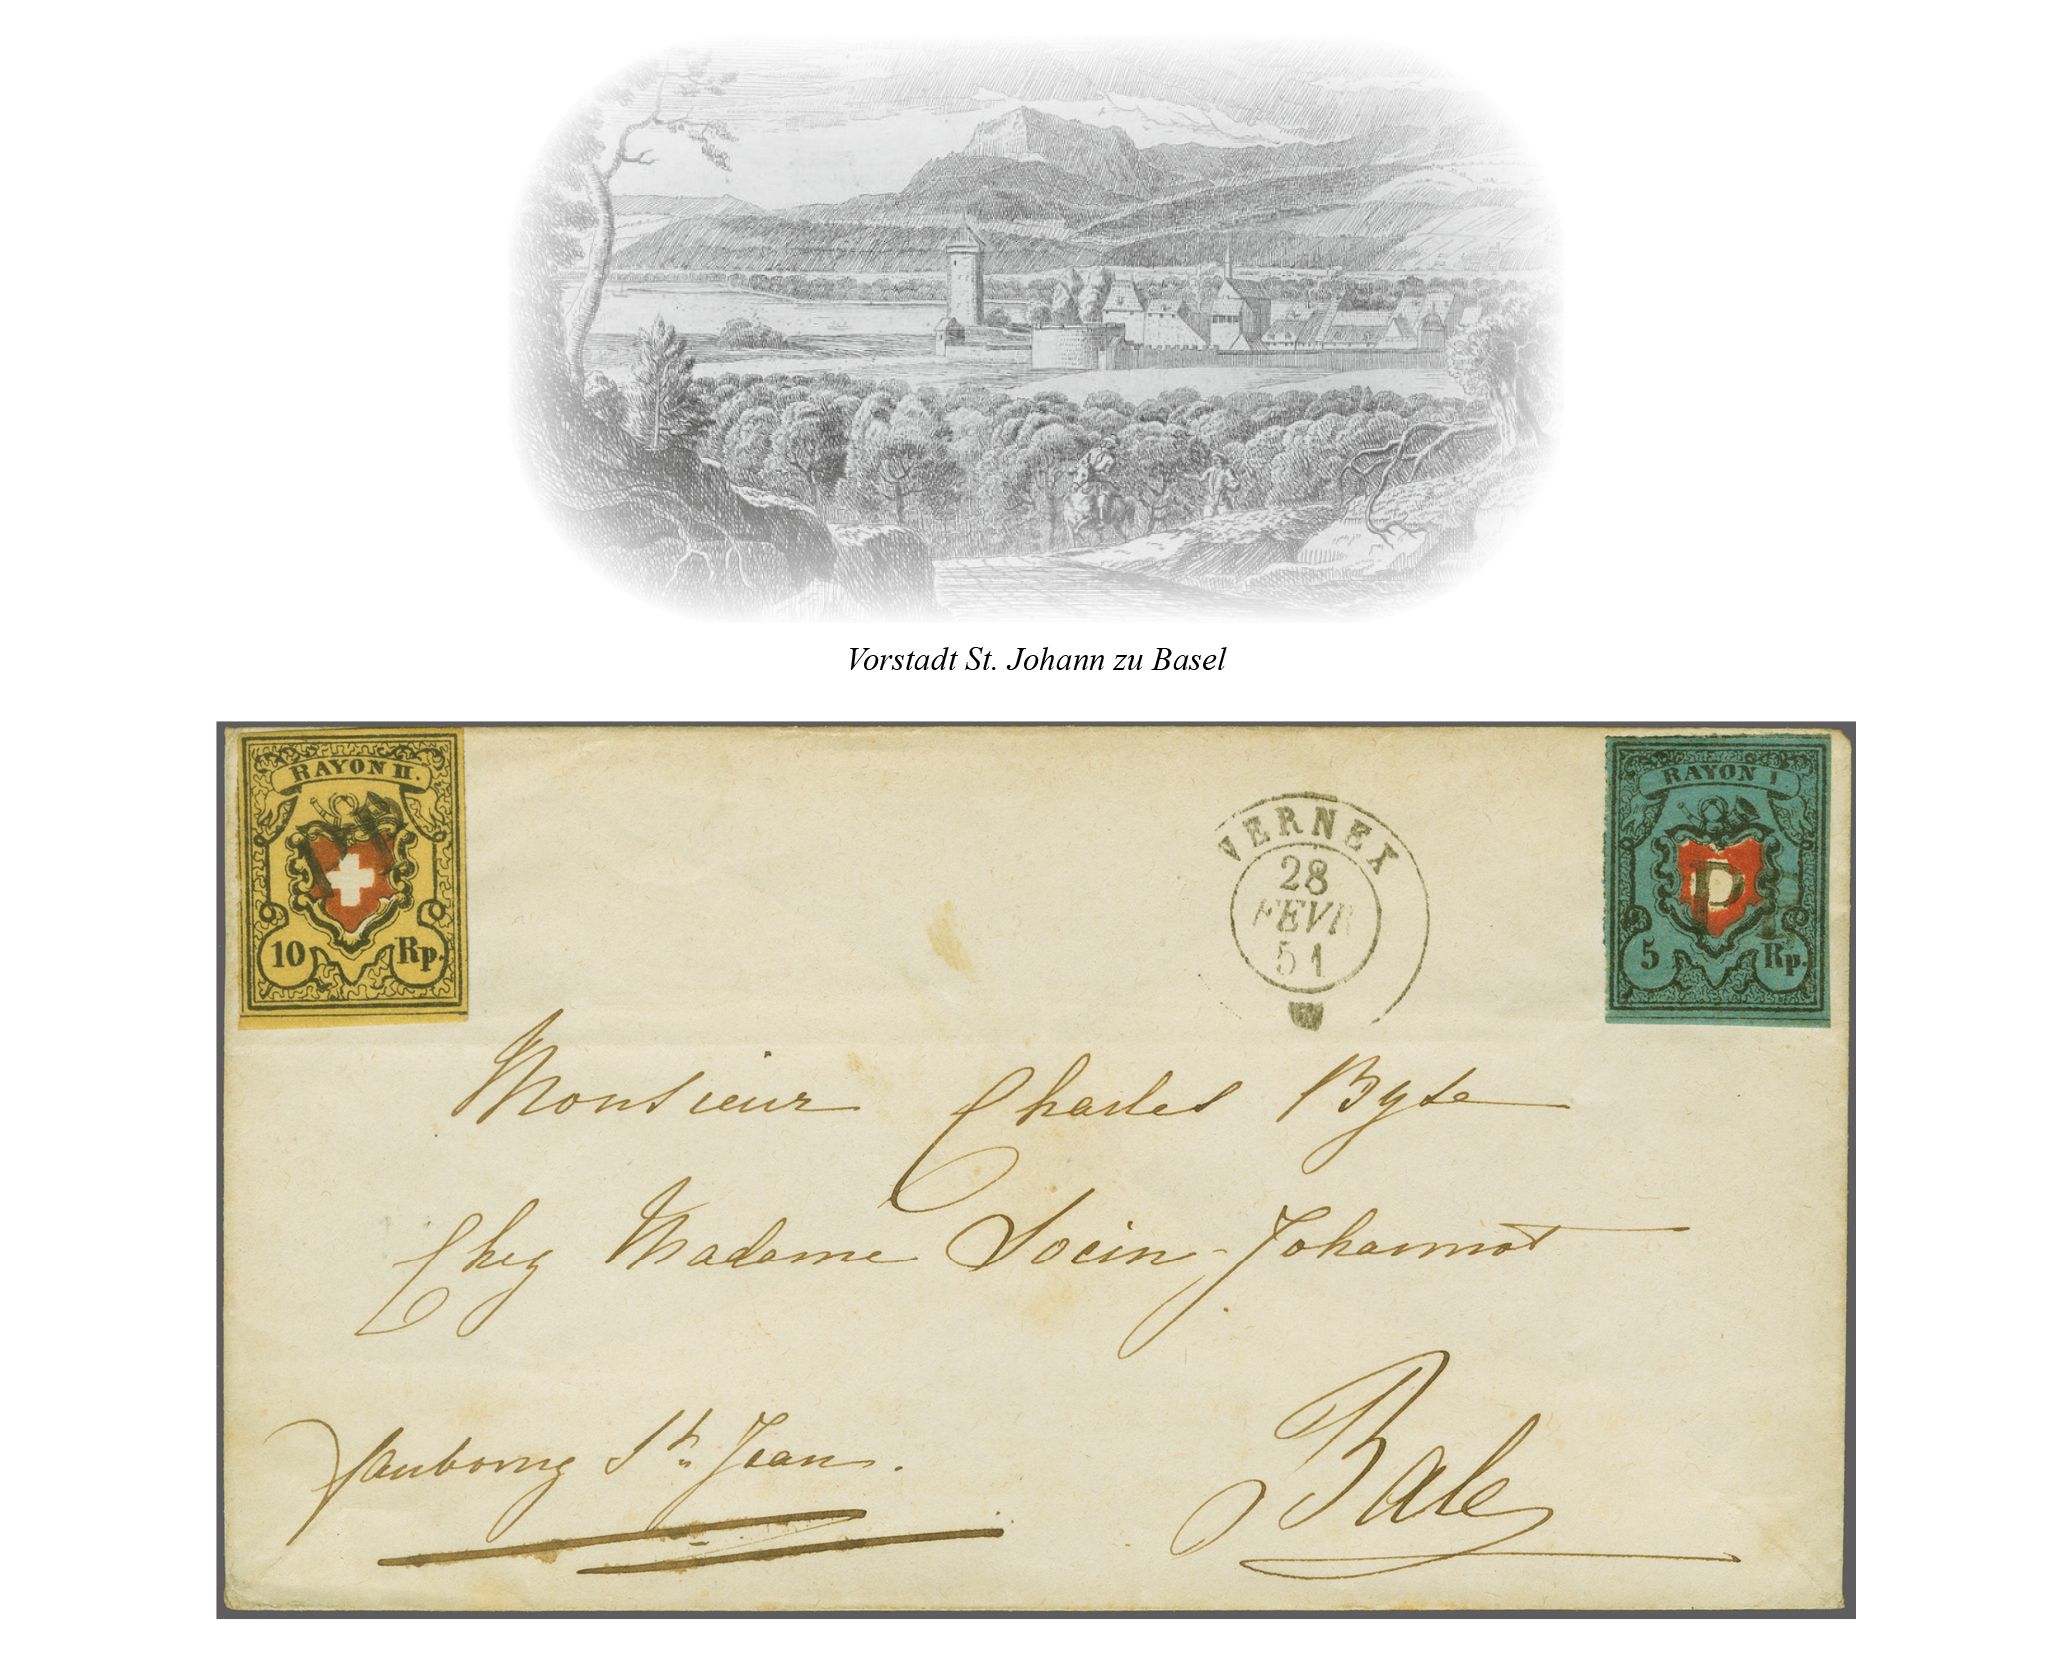 Vorstadt St. Johann zu Basel
RAYON II.
10 Rp.
PP
VERNEX
28
FEVR
51
RAYON I.
P.P.
5 Rp.
Monsieur Charles Byse
Chez Madame Socin-Johannot
faubourg St. Jean.
Bale